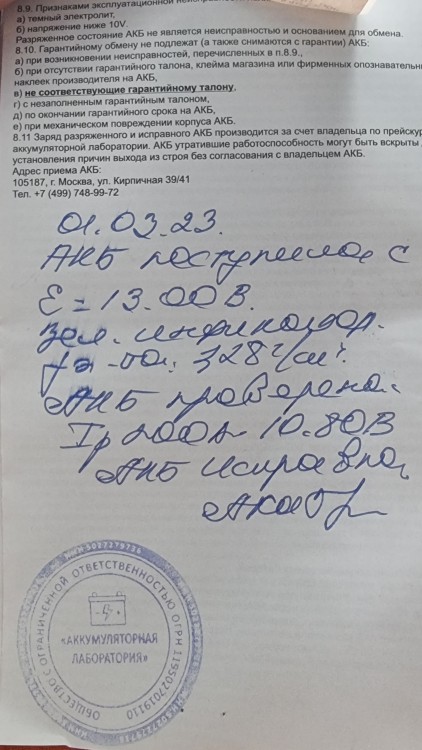 8.9. Признаками эксплуатационной
а) темный электролит,
б) напряжение ниже 10V.
Разряженное состояние АКБ не является неисправностью и основанием для обмена.
8.10. Гарантийному обмену не подлежат (а также снимаются с гарантии) АКБ:
а) при возникновении неисправностей, перечисленных в п.8.9.,
б) при отсутствии гарантийного талона, клейма магазина или фирменных
наклеек производителя на АКБ,
в) не соответствующие гарантийному талону,
г) с незаполненным гарантийным талоном,
д) по окончании гарантийного срока на АКБ,
е) при механическом повреждении корпуса АКБ.
8.11 Заряд разряженного и исправного АКБ производится за счет владельца по
аккумуляторной лаборатории. АКБ утратившие работоспособность могут быть вскрыты
установления причин выхода из строя без согласования с владельцем АКБ.
Адрес приема АКБ:
105187, г. Москва, ул. Кирпичная 39/41
Тел. +7 (499) 748-99-72
01.03.23.
АКБ поступила с
E = 13.00В.
зел. индикатор.
АКБ проверена.
Iр 200А 10.80В
АКБ исправна,
ОБЩЕСТВО С ОГРАНИЧЕННОЙ ОТВЕТСТВЕННОСТЬЮ ОГРН 1195027019110
«АККУМУЛЯТОРНАЯ
ЛАБОРАТОРИЯ»